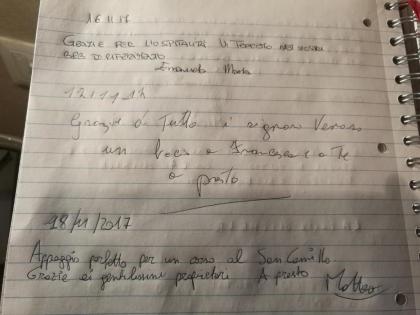 16.11.17
GRAZIE PER L'OSPITALITÀ VI TERREMO NEI NOSTRI
B&B DI RIFERIMENTO
Emanuela Marta
Grazie di Tutto i signori
un bacio a Francesca e a Te
a presto
18/11/2017
Appoggio perfetto per un corso al San Camillo.
Grazie ai gentilissimi proprietari A presto Matteo